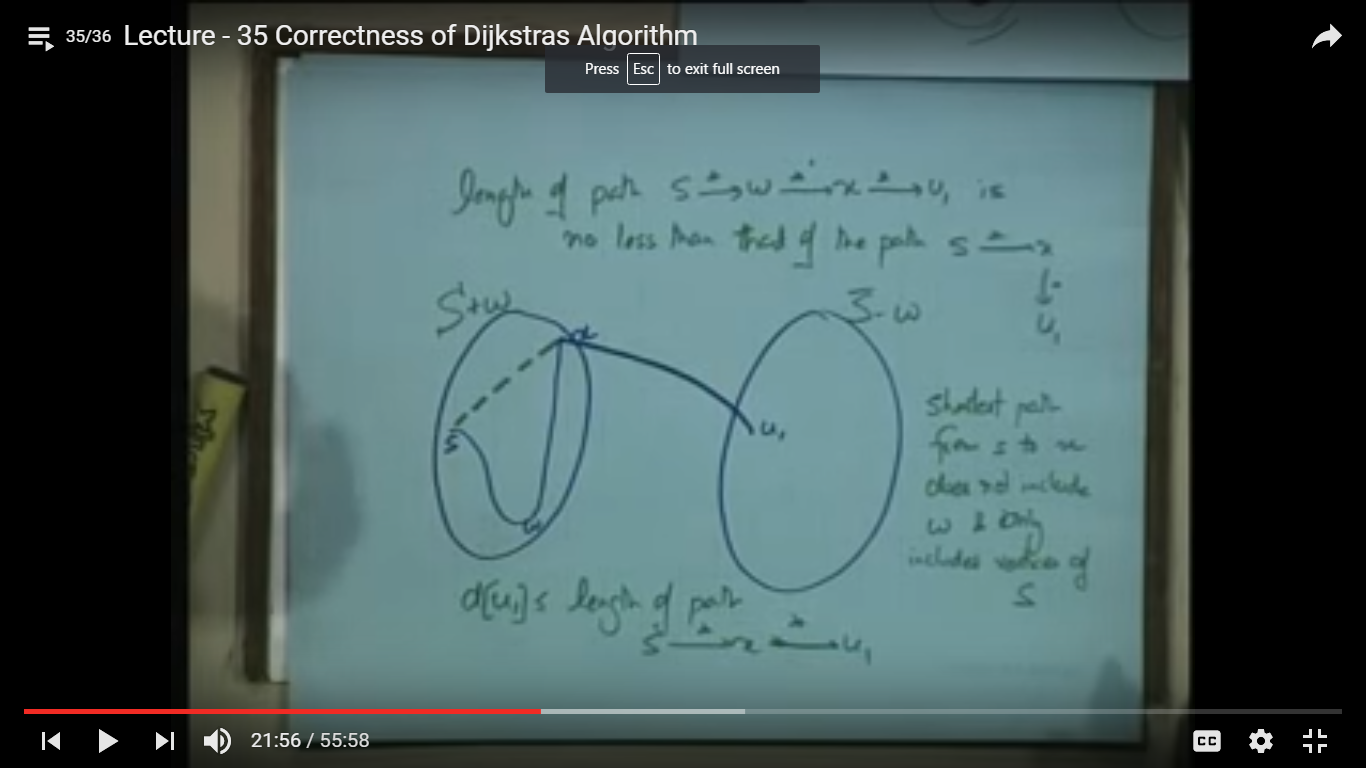 35/36 Lecture - 35 Correctness of Dijkstras Algorithm
Press Esc to exit full screen
length of path S *→ w *→ x *→ u₁ is
no less than that of the path s *→ x
↓*
u₁
S+w
S̄-w
x
s
u₁
w
Shortest path
from s to x
does not include
w & only
includes vertices of
S
d[u₁] ≤ length of path
s *→ x *→ u₁
21:56 / 55:58
CC